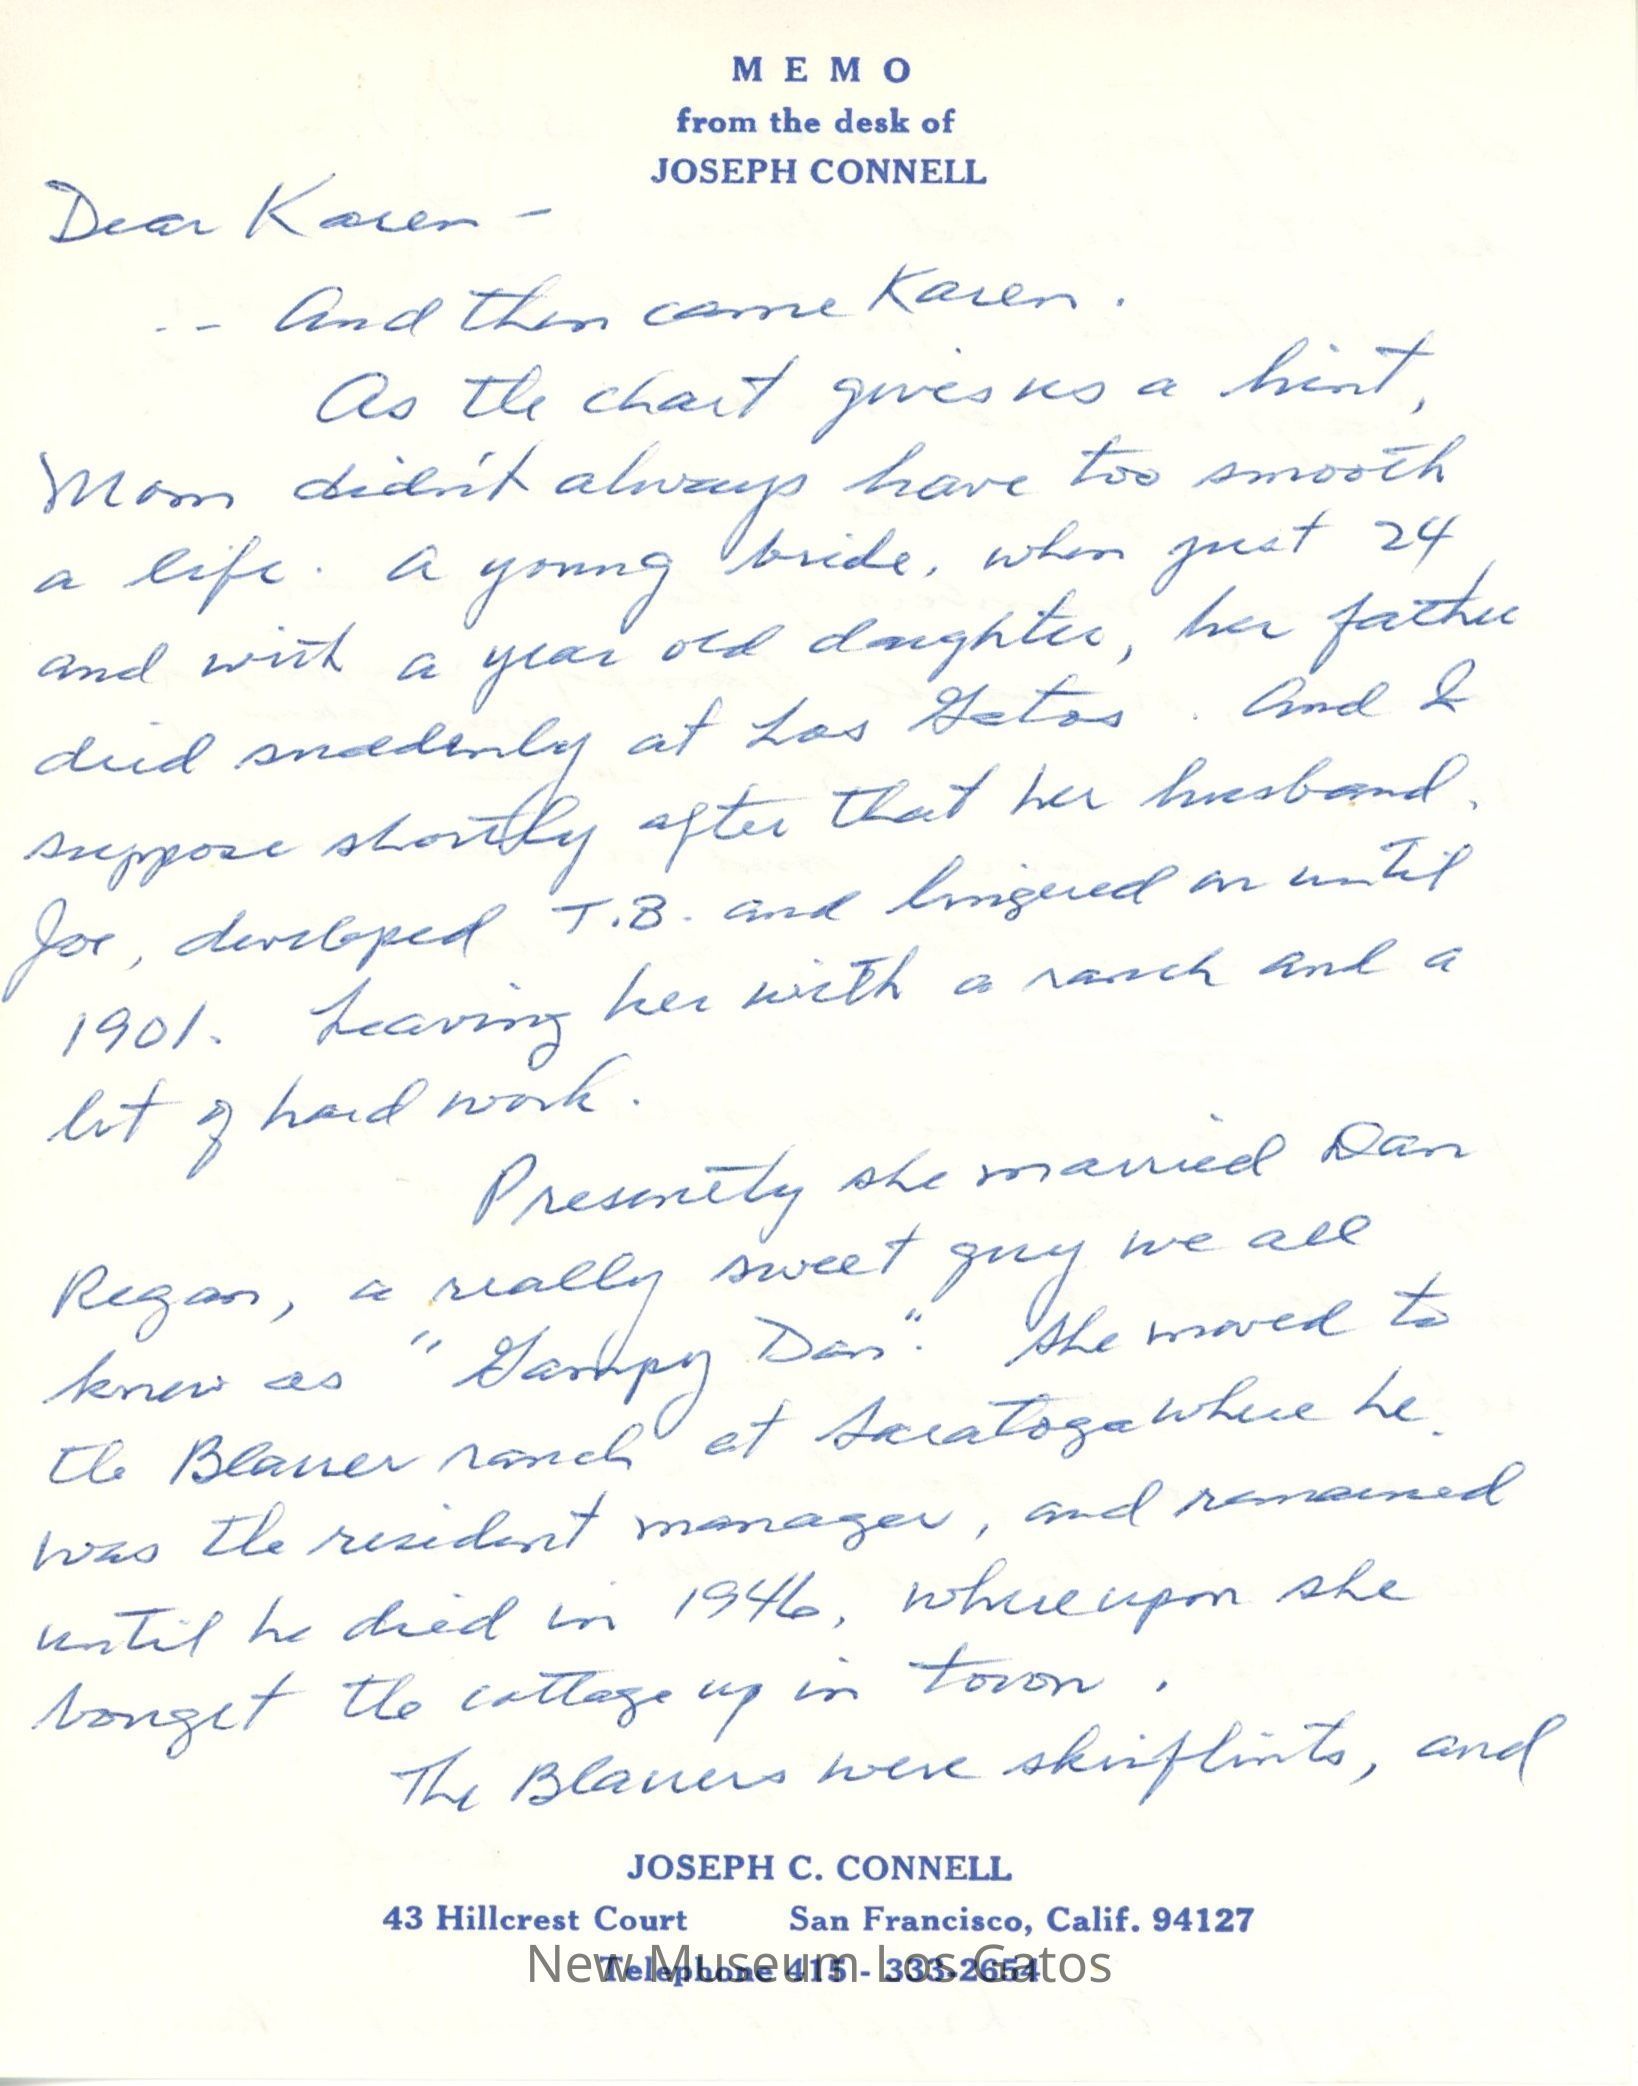 MEMO
from the desk of
JOSEPH CONNELL
Dear Karen -
-- And then came Karen.
As the chart gives us a hint,
Mom didn't always have too smooth
a life. A young bride, when just 24,
and with a year old daughter, her father
died suddenly at Los Gatos. And I
suppose shortly after that her husband,
Joe, developed T.B. and lingered on until
1901. Leaving her with a ranch and a
lot of hard work.
Presently she married Dan
Regan, a really sweet guy we all
knew as "Gampy Dan". She moved to
the Blauer ranch at Saratoga where he
was the resident manager, and remained
until he died in 1946, whereupon she
bought the cottage up in town.
The Blauers were skinflints, and
JOSEPH C. CONNELL
43 Hillcrest Court San Francisco, Calif. 94127
Telephone 415 - 333-2654
New Museum Los Gatos